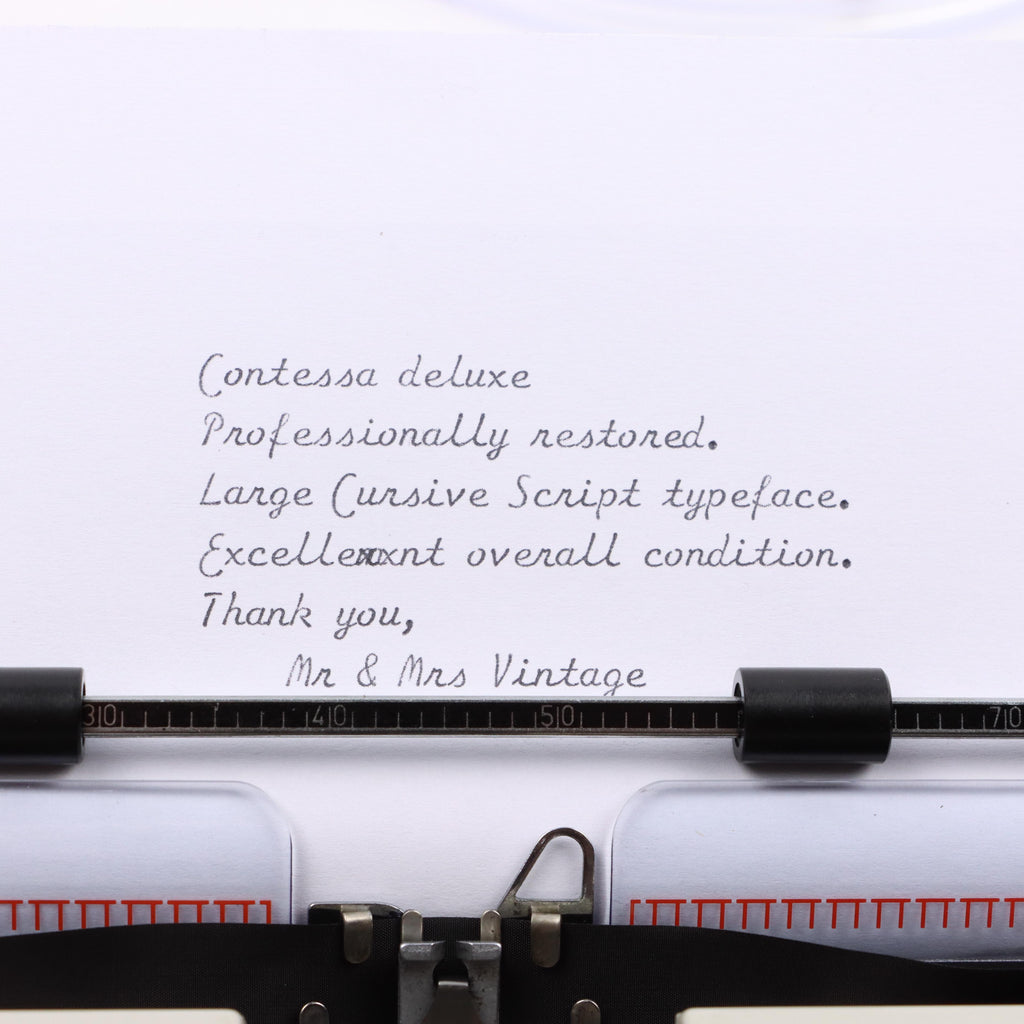 Contessa deluxe
Professionally restored.
Large Cursive Script typeface.
Excellexxxnt overall condition.
Thank you,
Mr & Mrs Vintage
30 40 50 70